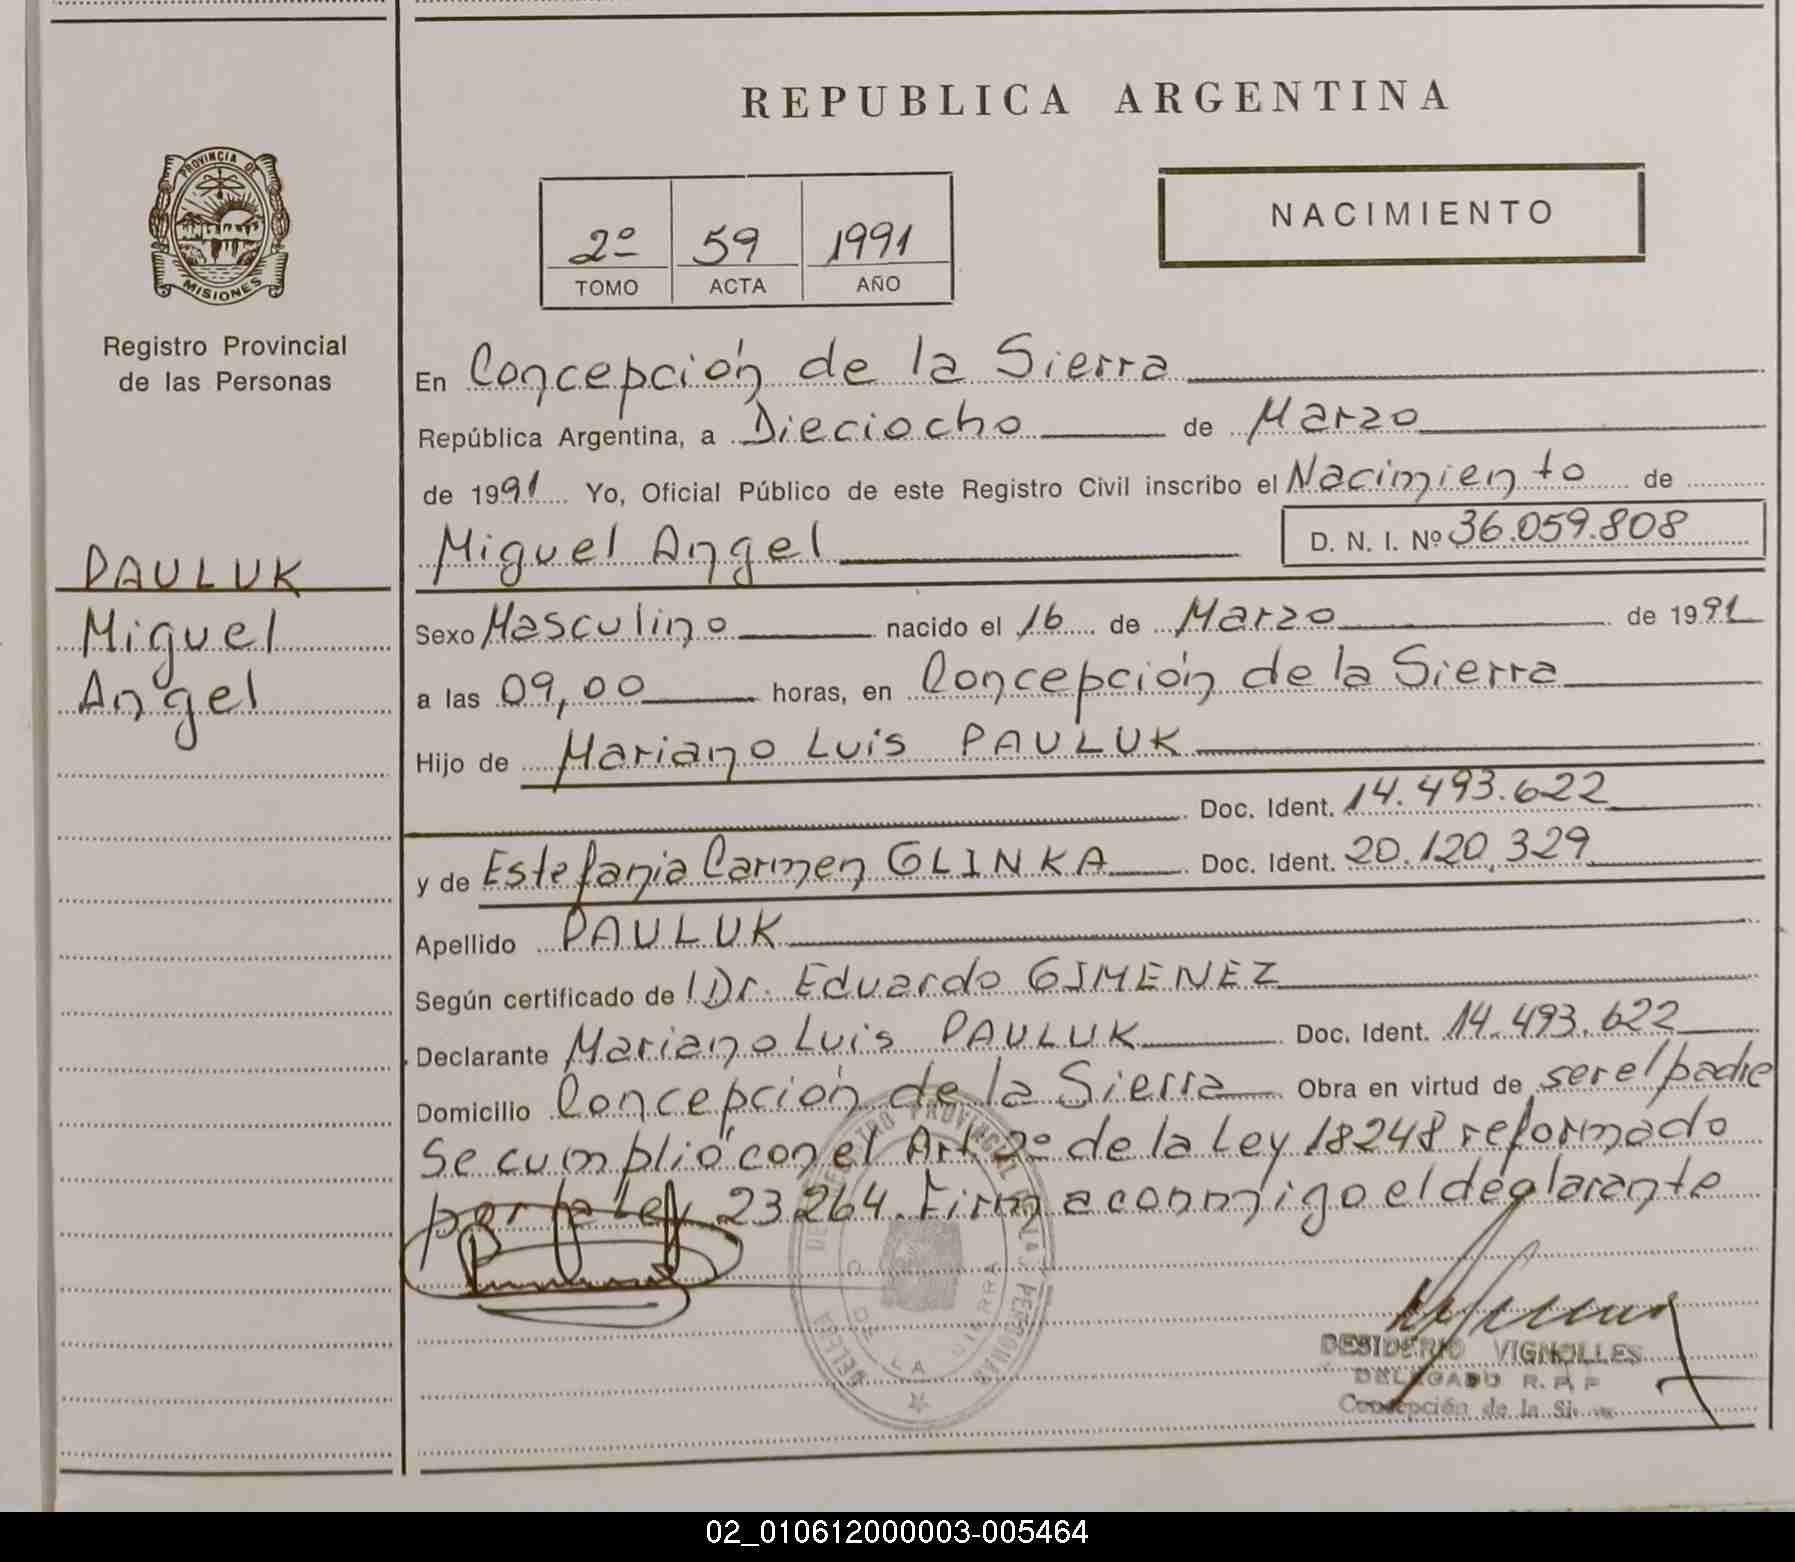 REPUBLICA ARGENTINA
PROVINCIA DE
MISIONES
Registro Provincial
de las Personas
2º 59 1991
TOMO ACTA AÑO
NACIMIENTO
PAULUK
Miguel
Angel
En Concepción de la Sierra
República Argentina, a Dieciocho de Marzo
de 1991 Yo, Oficial Público de este Registro Civil inscribo el Nacimiento de
Miguel Angel D. N. I. Nº 36.059.808
Sexo Masculino nacido el 16 de Marzo de 1991
a las 09,00 horas, en Concepción de la Sierra
Hijo de Mariano Luis PAULUK
Doc. Ident. 14.493.622
y de Estefania Carmen GLINKA Doc. Ident. 20.120.329
Apellido PAULUK
Según certificado de Dr. Eduardo GIMENEZ
Declarante Mariano Luis PAULUK Doc. Ident. 14.493.622
Domicilio Concepción de la Sierra Obra en virtud de ser el padre
Se cumplió con el Art. 2º de la Ley 18248 reformado
por la Ley 23264. Firma conmigo el declarante
DESIDERIO VIGNOLLES
DELEGADO R. P. P
Concepción de la
02_010612000003-005464